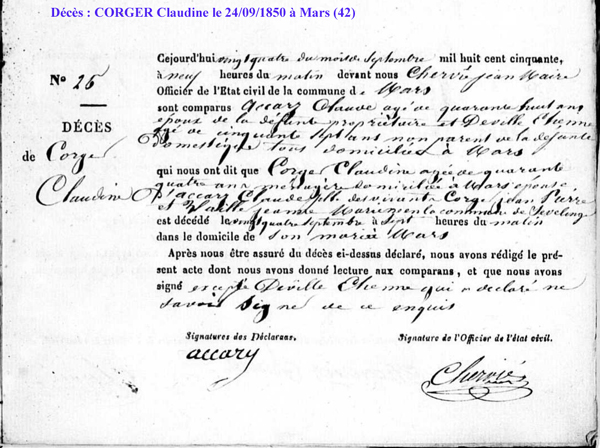 Décès : CORGER Claudine le 24/09/1850 à Mars (42)
N.º 26
DÉCÈS
de Corge
Claudine
Cejourd'hui vingt quatre du mois de Septembre mil huit cent cinquante,
à neuf heures du matin devant nous Chervié jean Maire
Officier de l'Etat civil de la commune de Mars
sont comparus accary Claude agé de quarante huit ans
epoux de la défunte propriétaire et Deville Etienne
agé de cinquante sept ans non parent de la défunte
domestique tous domiciliés à Mars
qui nous ont dit que Corge Claudine agée de quarante
quatre ans menagère domiciliée à Mars epouse
d'accary Claude fille des vivants Corge jean Pierre
et jeanne Marie en la commune de Sevelinge
est décédé le vingt quatre septembre à sept heures du matin
dans le domicile de son mari à Mars
Après nous être assuré du décès ci-dessus déclaré, nous avons rédigé le pré-
sent acte dont nous avons donné lecture aux comparans, et que nous avons
signé excepté Déville Etienne qui a declaré ne
savoir signé de ce enquis
Signatures des Déclarans.
accary
Signature de l'Officier de l'état civil.
Chervié